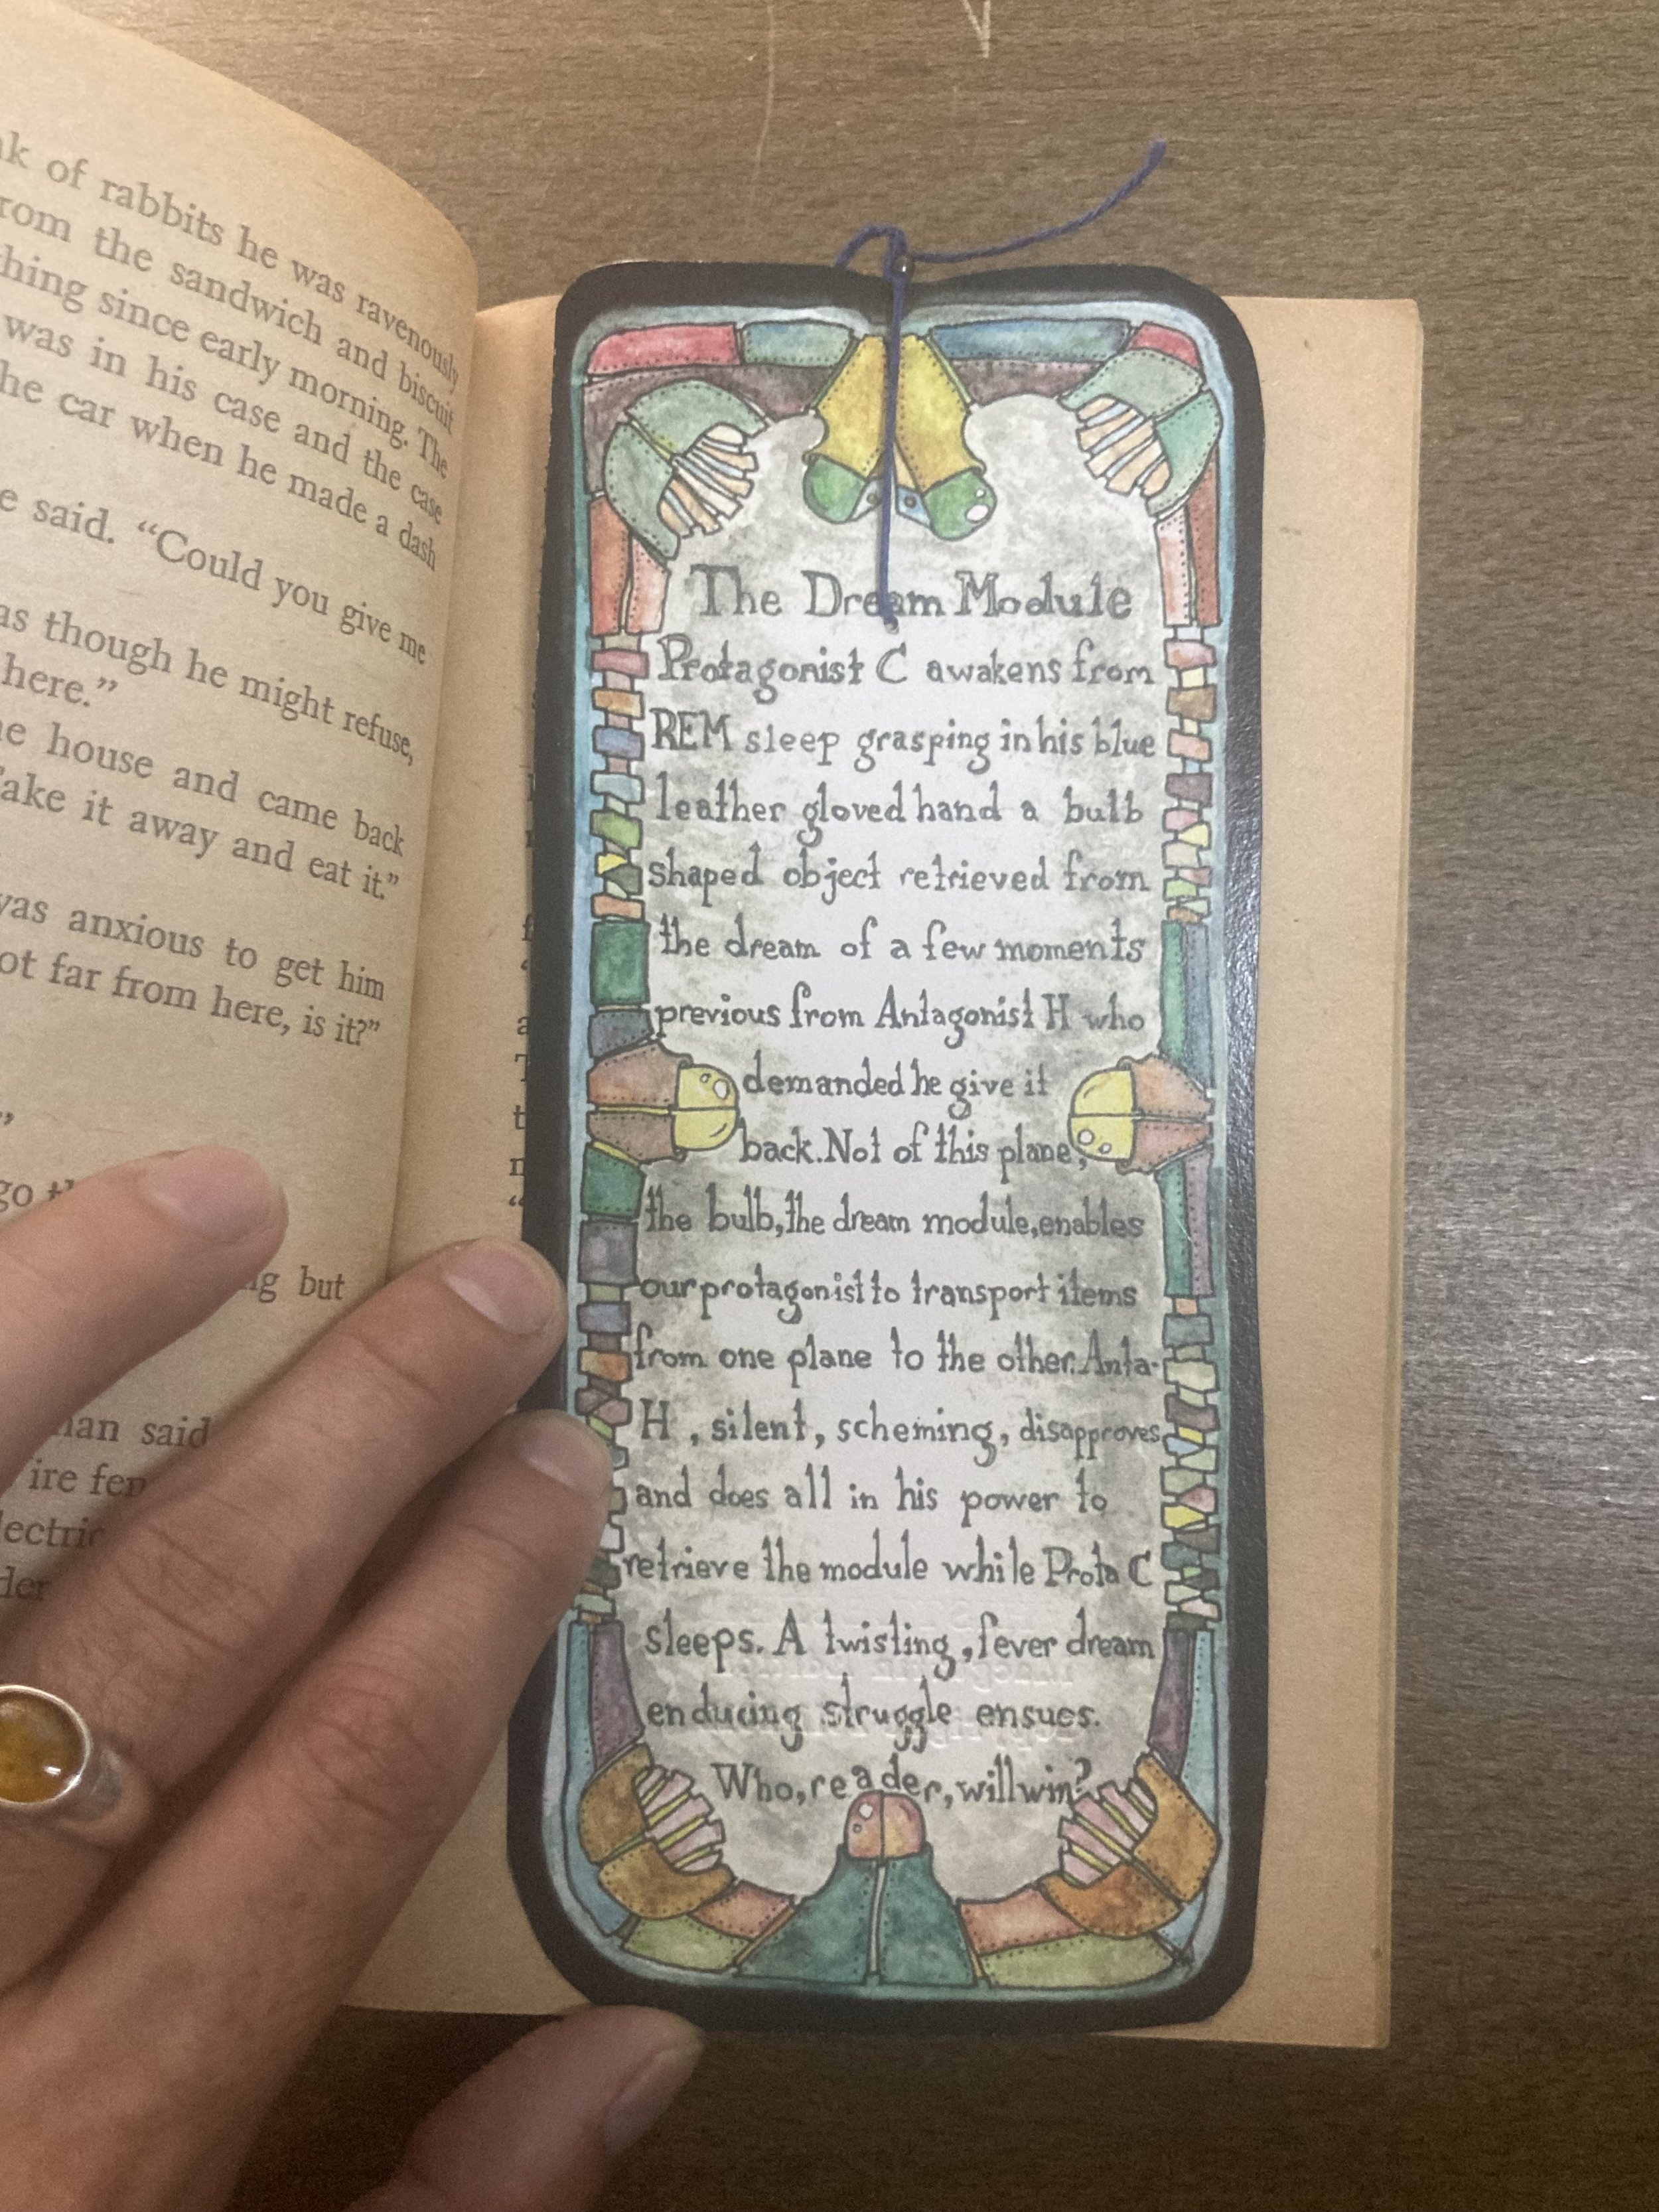 k of rabbits he was ravenously
rom the sandwich and biscuit
hing since early morning. The
was in his case and the case
he car when he made a dash
e said. “Could you give me
as though he might refuse,
here.”
he house and came back
ake it away and eat it.”
was anxious to get him
ot far from here, is it?”
”
go
ng but
man said
ire fen
lectric
der
The Dream Module
Protagonist C awakens from
REM sleep grasping in his blue
leather gloved hand a bulb
shaped object retrieved from
the dream of a few moments
previous from Antagonist H who
demanded he give it
back. Not of this plane,
the bulb, the dream module, enables
our protagonist to transport items
from one plane to the other. Anta-
H, silent, scheming, disapproves
and does all in his power to
retrieve the module while Prota C
sleeps. A twisting, fever dream
enducing struggle ensues.
Who, reader, will win?